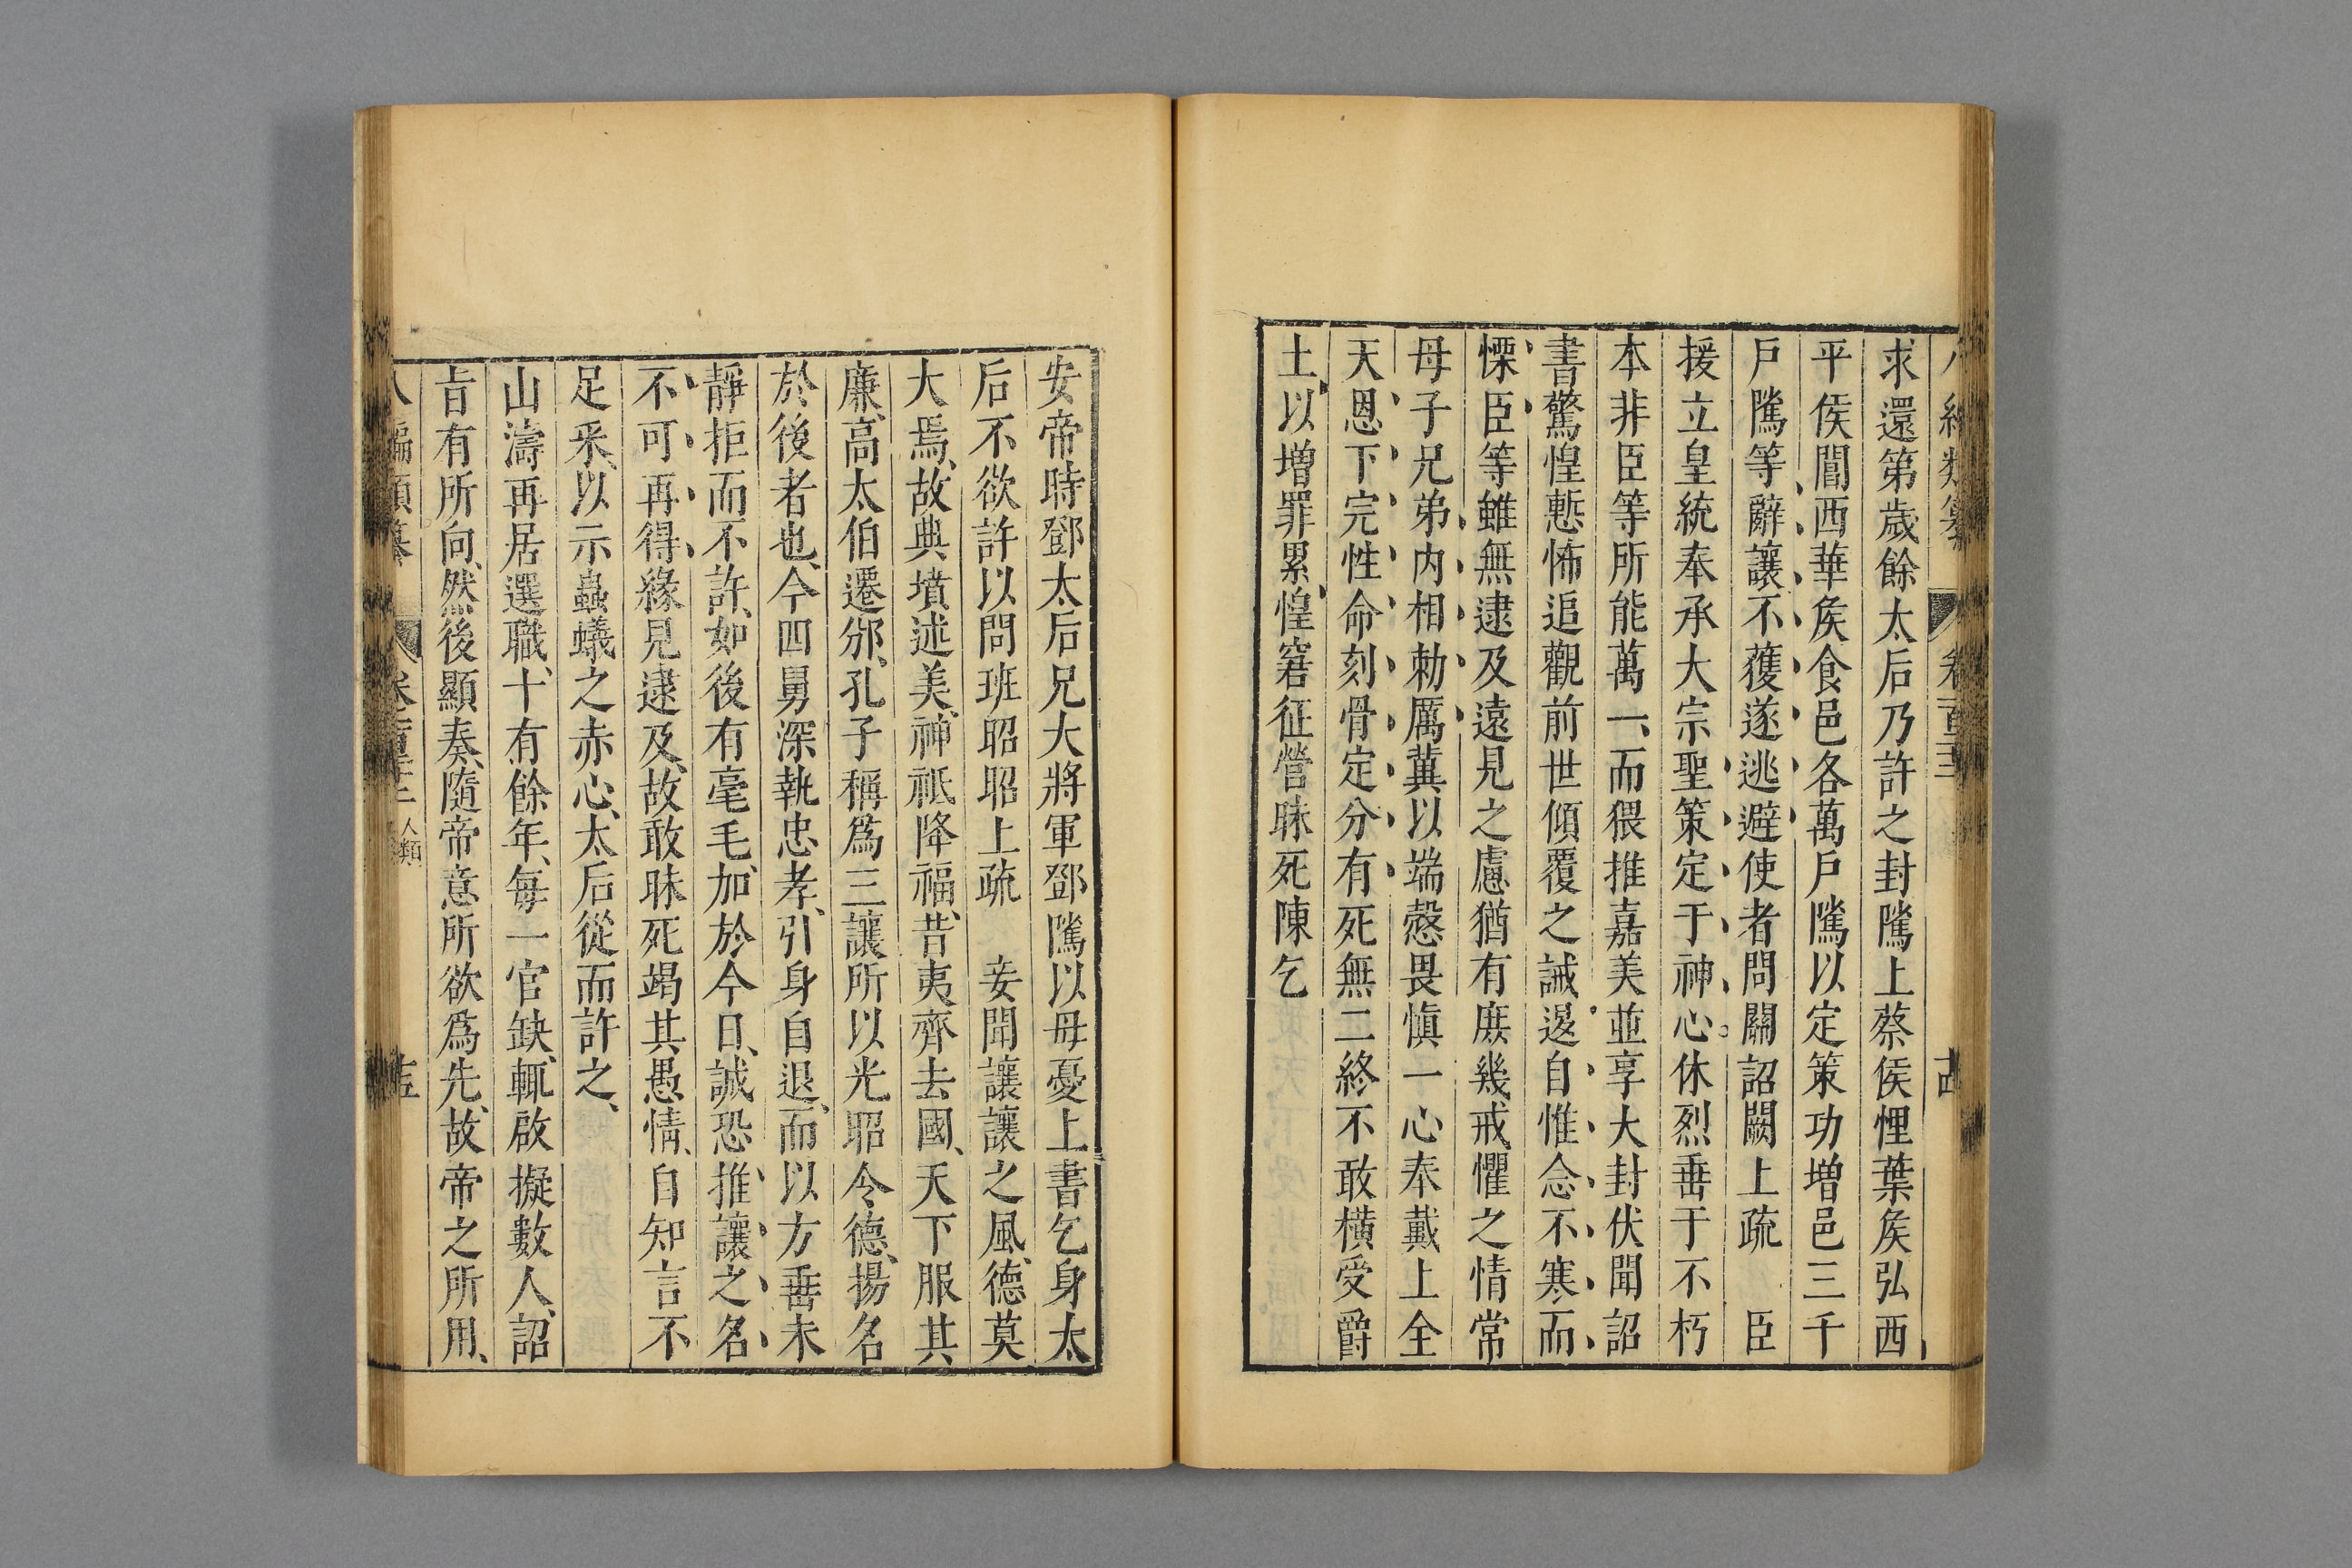 求還第歲餘太后乃許之封隲上蔡侯悝葉侯弘西
平侯閶西華侯食邑各萬戶隲以定策功增邑三千
戶隲等辭讓不獲遂逃避使者間關詔闕上疏　臣
援立皇統奉承大宗聖策定于神心休烈垂于不朽
本非臣等所能萬一而猥推嘉美並享大封伏聞詔
書驚惶慙怖追觀前世傾覆之誡退自惟念不寒而
慄臣等雖無逮及遠見之慮猶有庶幾戒懼之情常
母子兄弟內相勅厲冀以端慤畏慎一心奉戴上全
天恩下完性命刻骨定分有死無二終不敢橫受爵
土以增罪累惶窘征營昧死陳乞
安帝時鄧太后兄大將軍鄧隲以母憂上書乞身太
后不欲許以問班昭昭上疏　妾聞讓讓之風德莫
大焉故典墳述美神祗降福昔夷齊去國天下服其
廉高太伯遷邠孔子稱為三讓所以光昭令德揚名
於後者也今四舅深執忠孝引身自退而以方垂未
靜拒而不許如後有毫毛加於今日誠恐推讓之名
不可再得緣見逮及故敢昧死竭其愚情自知言不
足采以示蟲蟻之赤心太后從而許之
山濤再居選職十有餘年每一官缺輒啟擬數人詔
旨有所向然後顯奏隨帝意所欲為先故帝之所用
人類